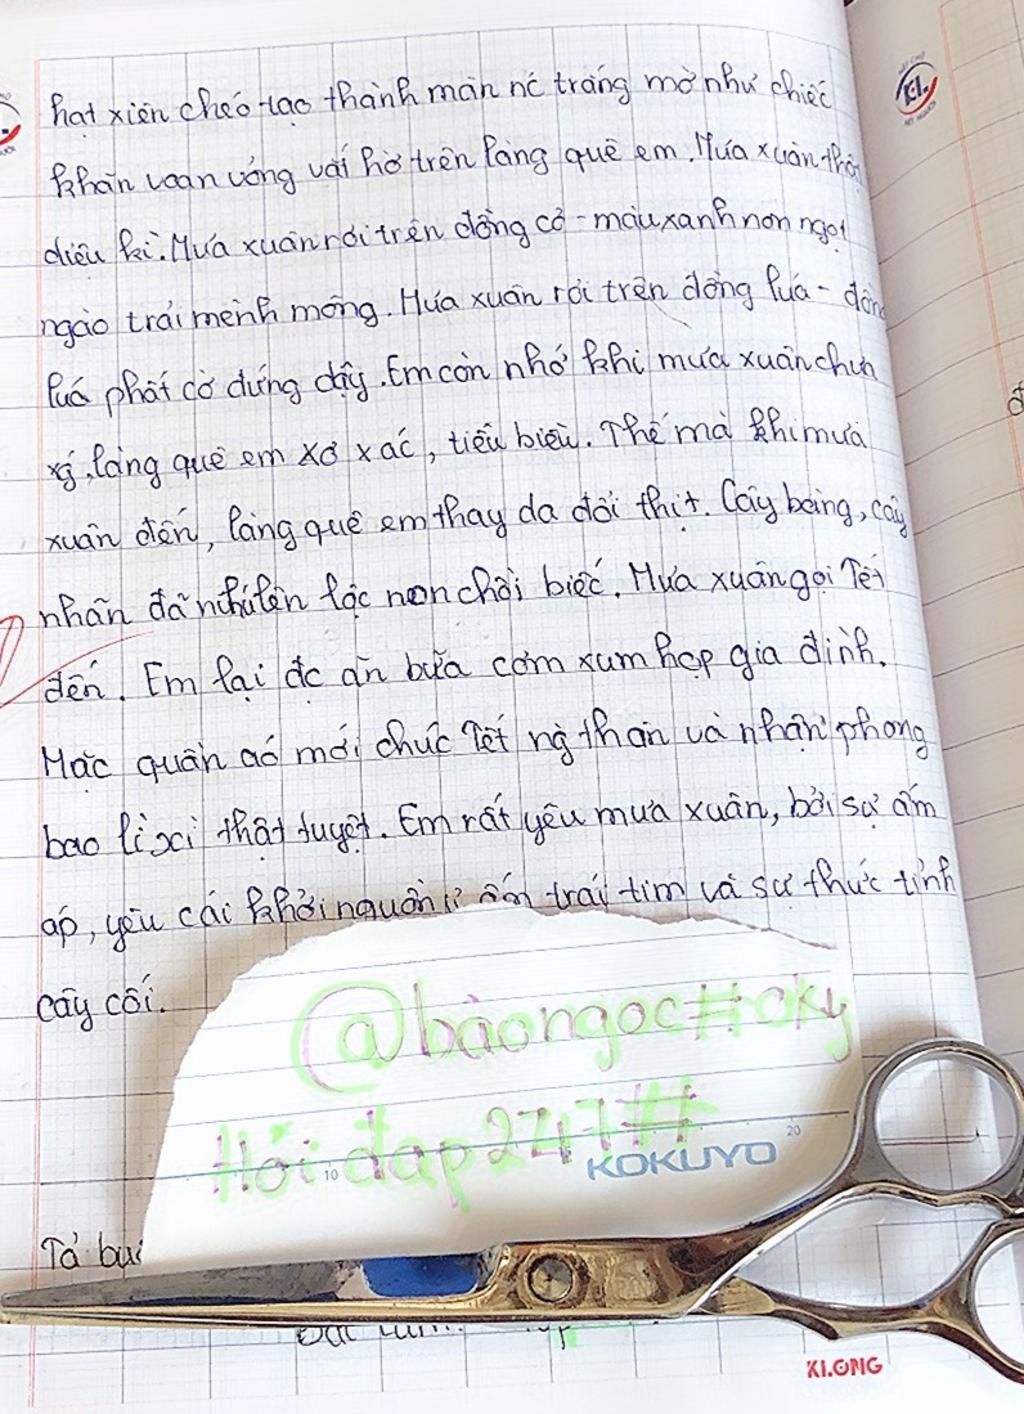 hạt xiên chéo tạo thành màn nc trắng mờ như chiếc
khăn voan vóng vải hờ trên làng quê em. Mưa xuân thật
diệu kì. Mưa xuân rơi trên đồng cỏ - màu xanh non ngọt
ngào trải mênh mông. Mưa xuân rơi trên đồng lúa - đồng
lúa phất cờ đứng dậy. Em còn nhớ khi mưa xuân chưa
, làng quê em xơ xác, tiêu biêu. Thế mà khi mưa
xuân đến, làng quê em thay da đổi thịt. Cây bàng, cây
nhãn đã nhú lên lộc non chồi biếc. Mưa xuân gọi Tết
đến. Em lại đc ăn bữa cơm xum họp gia đình.
Mặc quần áo mới chúc Tết ng thân và nhận phong
bao lì xì thật tuyệt. Em rất yêu mưa xuân, bởi sự ấm
áp, yêu cái khởi nguồn ấm trái tim và sự thức tỉnh
cây cối.
@bảongoc#oky
Hỏi đap247##
10 KOKUYO 20
Tả
KLONG
KL